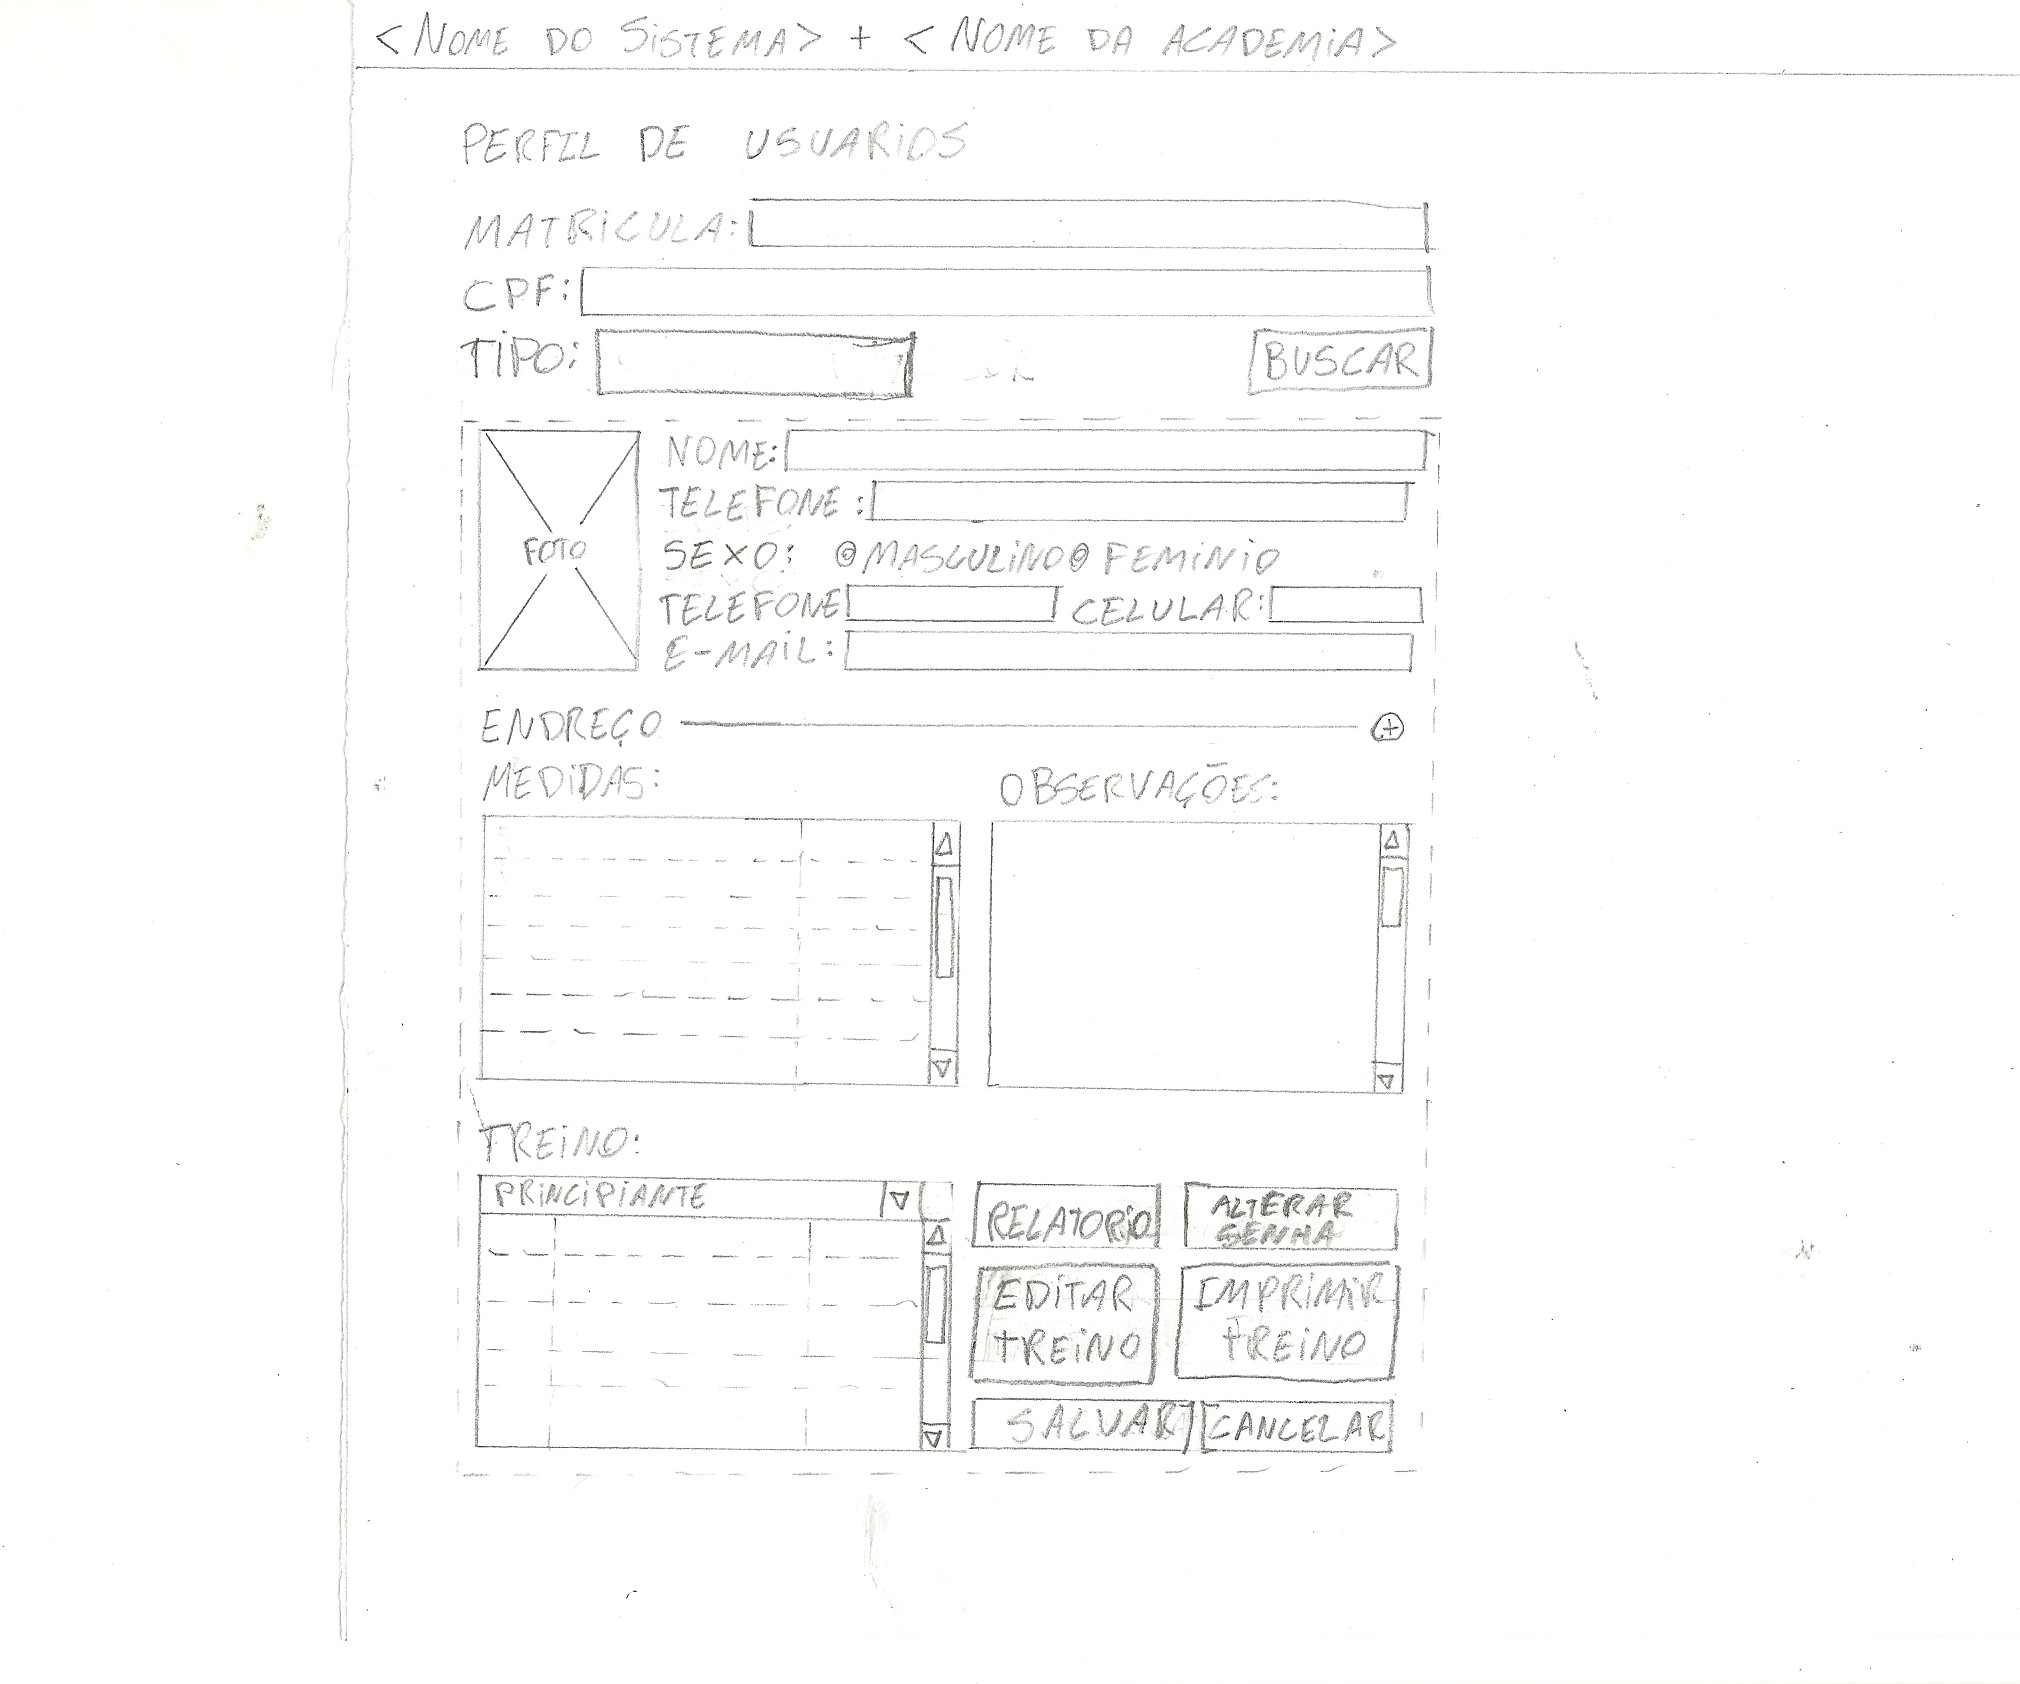 <NOME DO SISTEMA> + <NOME DA ACADEMIA>
PERFIL DE USUARIOS
MATRICULA:
CPF:
TIPO:
BUSCAR
FOTO
NOME:
TELEFONE:
SEXO: MASCULINO FEMINIO
TELEFONE CELULAR:
E-MAIL:
ENDREÇO +
MEDIDAS:
OBSERVAÇÕES:
TREINO:
PRINCIPIANTE
RELATORIO
ALTERAR
SENHA
EDITAR
TREINO
IMPRIMIR
TREINO
SALVAR
CANCELAR